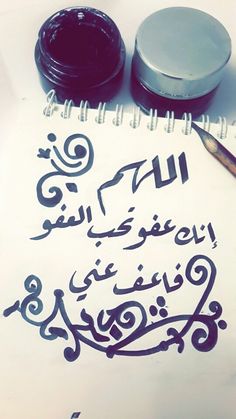 اللهم
إنك عفو تحب العفو
فاعف عني